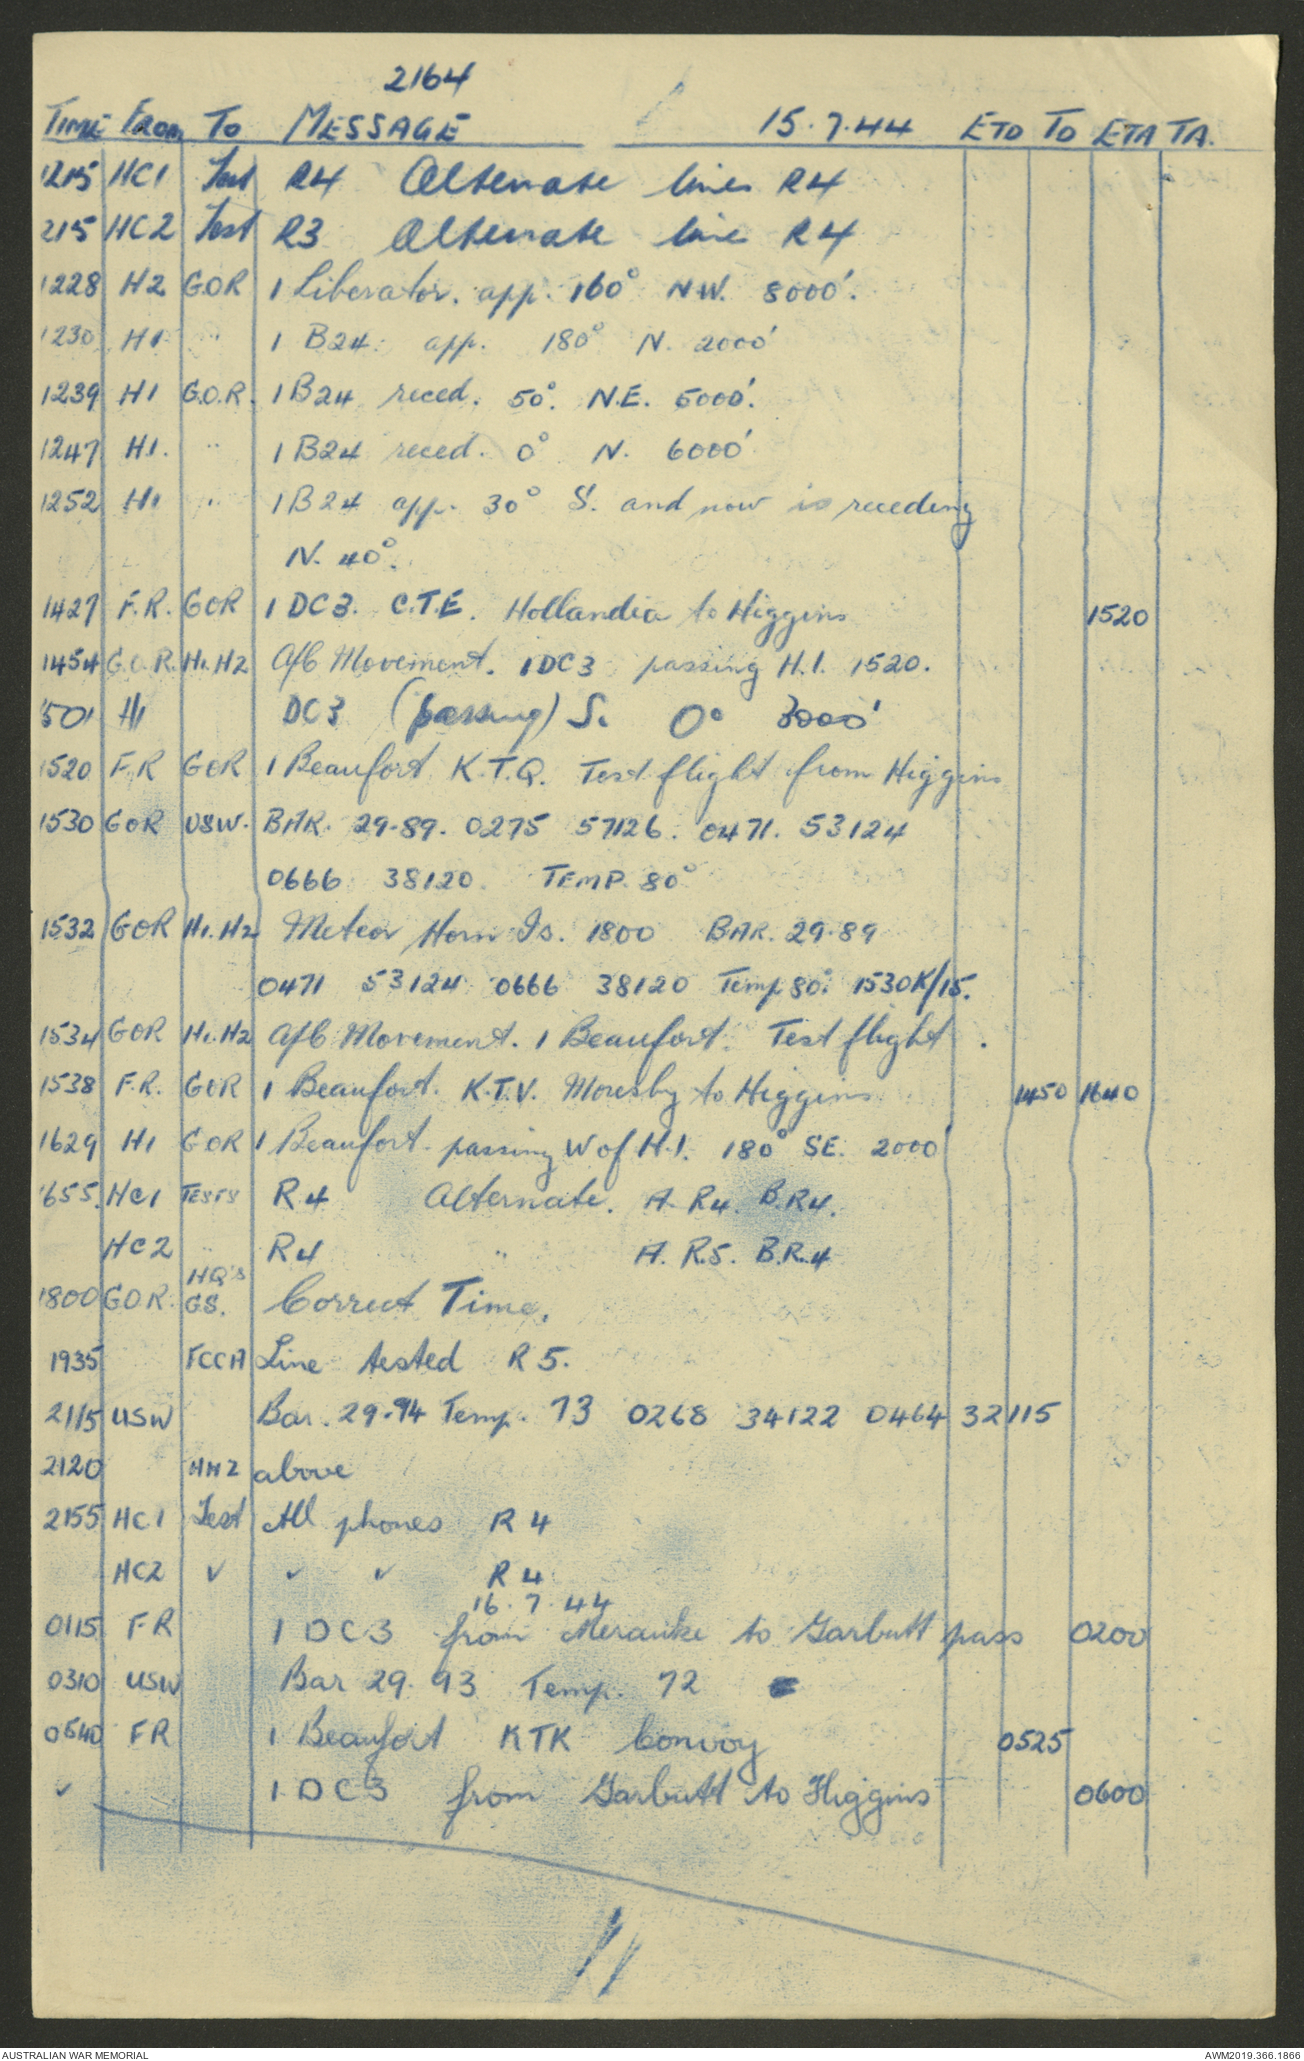 2164
TIME FROM TO MESSAGE 15.7.44 ETD TO ETA TA.
1215 HC1 Test R4 Alternate lines R4
1215 HC2 Test R3 Alternate line R4
1228 H2 G.O.R 1 Liberator. app. 160° NW. 8000'.
1230 H1 " 1 B24. app. 180° N. 2000'
1239 H1 G.O.R. 1 B24 reced. 50°. N.E. 5000'.
1247 H1. " 1 B24 reced. 0° N. 6000'
1252 H1 " 1 B24 app. 30° S. and now is receding
N. 40°.
1427 F.R. GOR 1 DC3. C.T.E. Hollandia to Higgins 1520
1454 G.O.R. H1. H2 A/C Movement. 1 DC3 passing H.1. 1520.
1501 H1 DC3 (passing) S. 0° 3000'
1520 F.R GOR 1 Beaufort K.T.Q. Test flight from Higgins
1530 GOR USW. BAR. 29.89. 0275 57126. 0471. 53124
0666 38120. TEMP. 80°
1532 GOR H1. H2 Meteor Horn Is. 1800 BAR. 29.89
0471 53124 0666 38120 Temp 80°. 1530K/15.
1534 GOR H1. H2 A/C Movement. 1 Beaufort. Test flight.
1538 F.R. GOR 1 Beaufort. K.T.V. Moresby to Higgins 1450 1640
1629 H1 GOR 1 Beaufort. passing W of H.1. 180° SE. 2000'
1655. HC1 TESTS R4 Alternate. A. R4. B.R4.
HC2 " R4 " A. R.5. B.R.4
HQ's
1800 G.O.R. GS. Correct Time.
1935 FCCA Line tested R 5.
2115 USW Bar. 29.94 Temp. 73 0268 34122 0464 32115
2120 HH2 above
2155 HC1 Test All phones R 4
HC2 " " " R 4
16.7.44
0115 FR 1 DC3 from Merauke to Garbutt pass 0200
0310 USW Bar 29.93 Temp. 72
0540 FR 1 Beaufort KTK Convoy 0525
" 1 DC3 from Garbutt to Higgins 0600
11
AUSTRALIAN WAR MEMORIAL AWM2019.366.1866